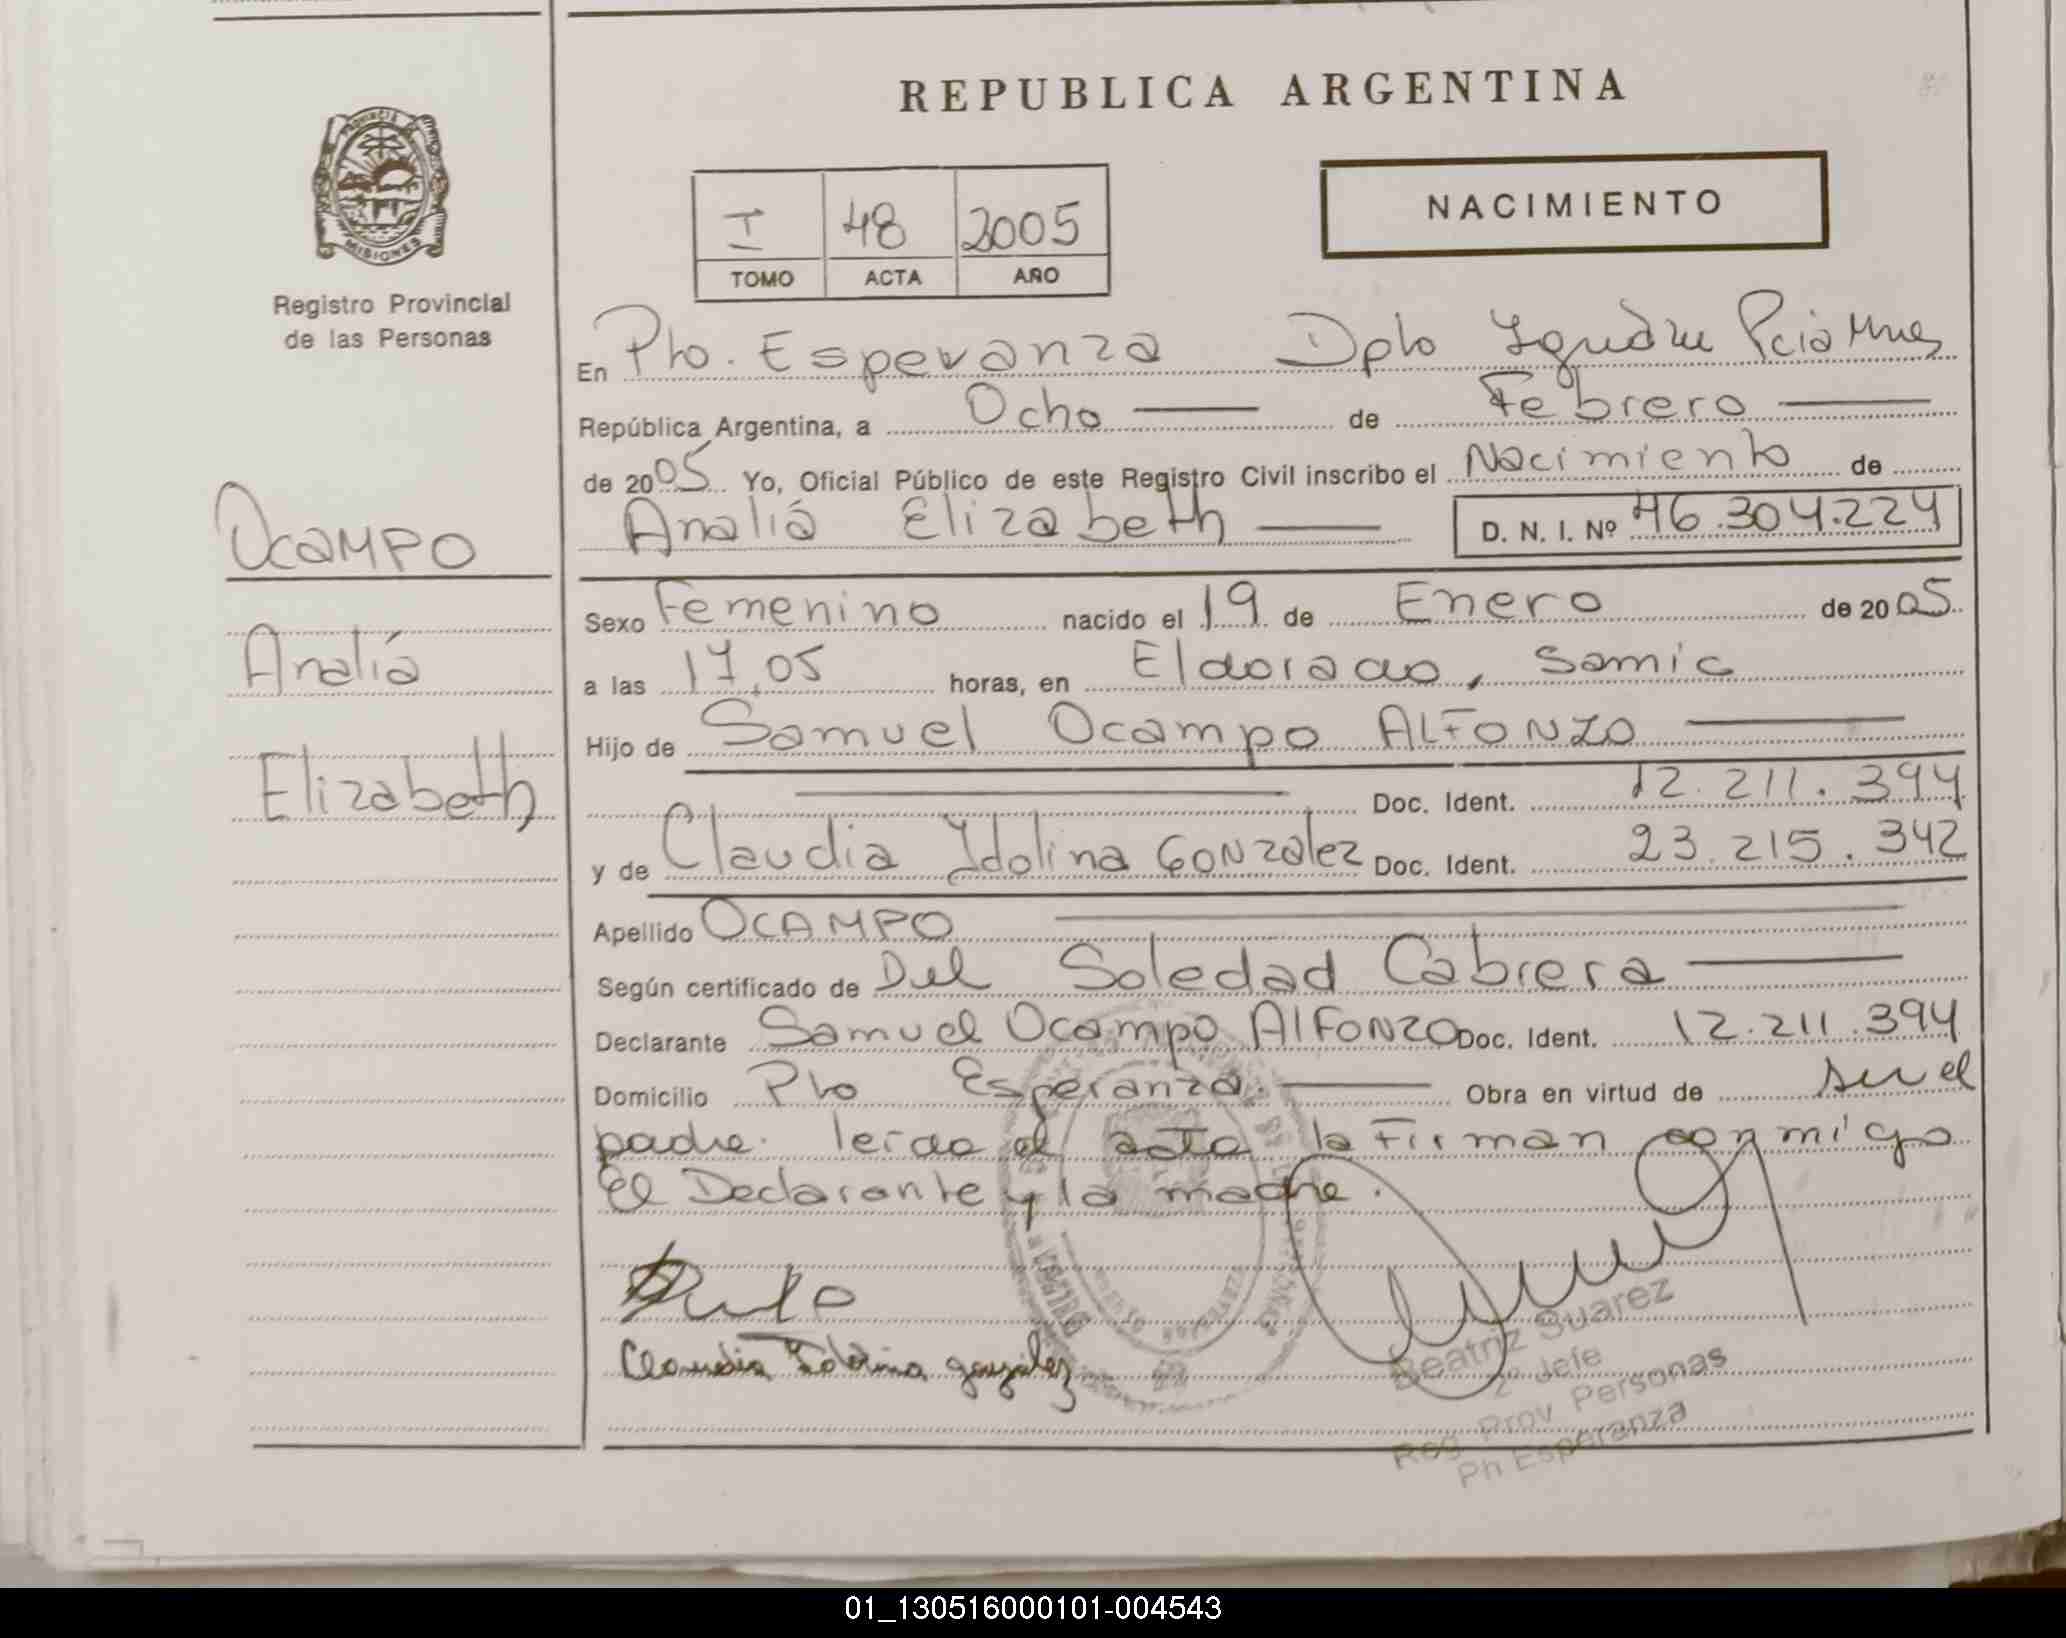 REPUBLICA ARGENTINA
PROVINCIA DE MISIONES
Registro Provincial
de las Personas
I 48 2005
TOMO ACTA AÑO
NACIMIENTO
En Pto. Esperanza Dpto Iguazu Pcia Mnes
República Argentina, a Ocho de Febrero
de 2005 Yo, Oficial Público de este Registro Civil inscribo el Nacimiento de
Analiá Elizabeth D. N. I. Nº 46.304.224
OCAMPO
Analiá
Elizabeth
Sexo Femenino nacido el 19 de Enero de 2005
a las 17,05 horas, en Eldorado, Samic
Hijo de Samuel Ocampo ALFONZO
Doc. Ident. 12.211.394
y de Claudia Idolina GONZalez Doc. Ident. 23.215.342
Apellido OCAMPO
Según certificado de Del Soledad Cabrera
Declarante Samuel Ocampo AlFONZO Doc. Ident. 12.211.394
Domicilio Pto Esperanza. Obra en virtud de ser el
padre. leida el acta la Firman conmigo
El Declarante y la madre.
Claudia Idolina gonzalez
Beatriz Suarez
2º Jefe
Reg. Prov. Personas
Pto Esperanza
01_130516000101-004543